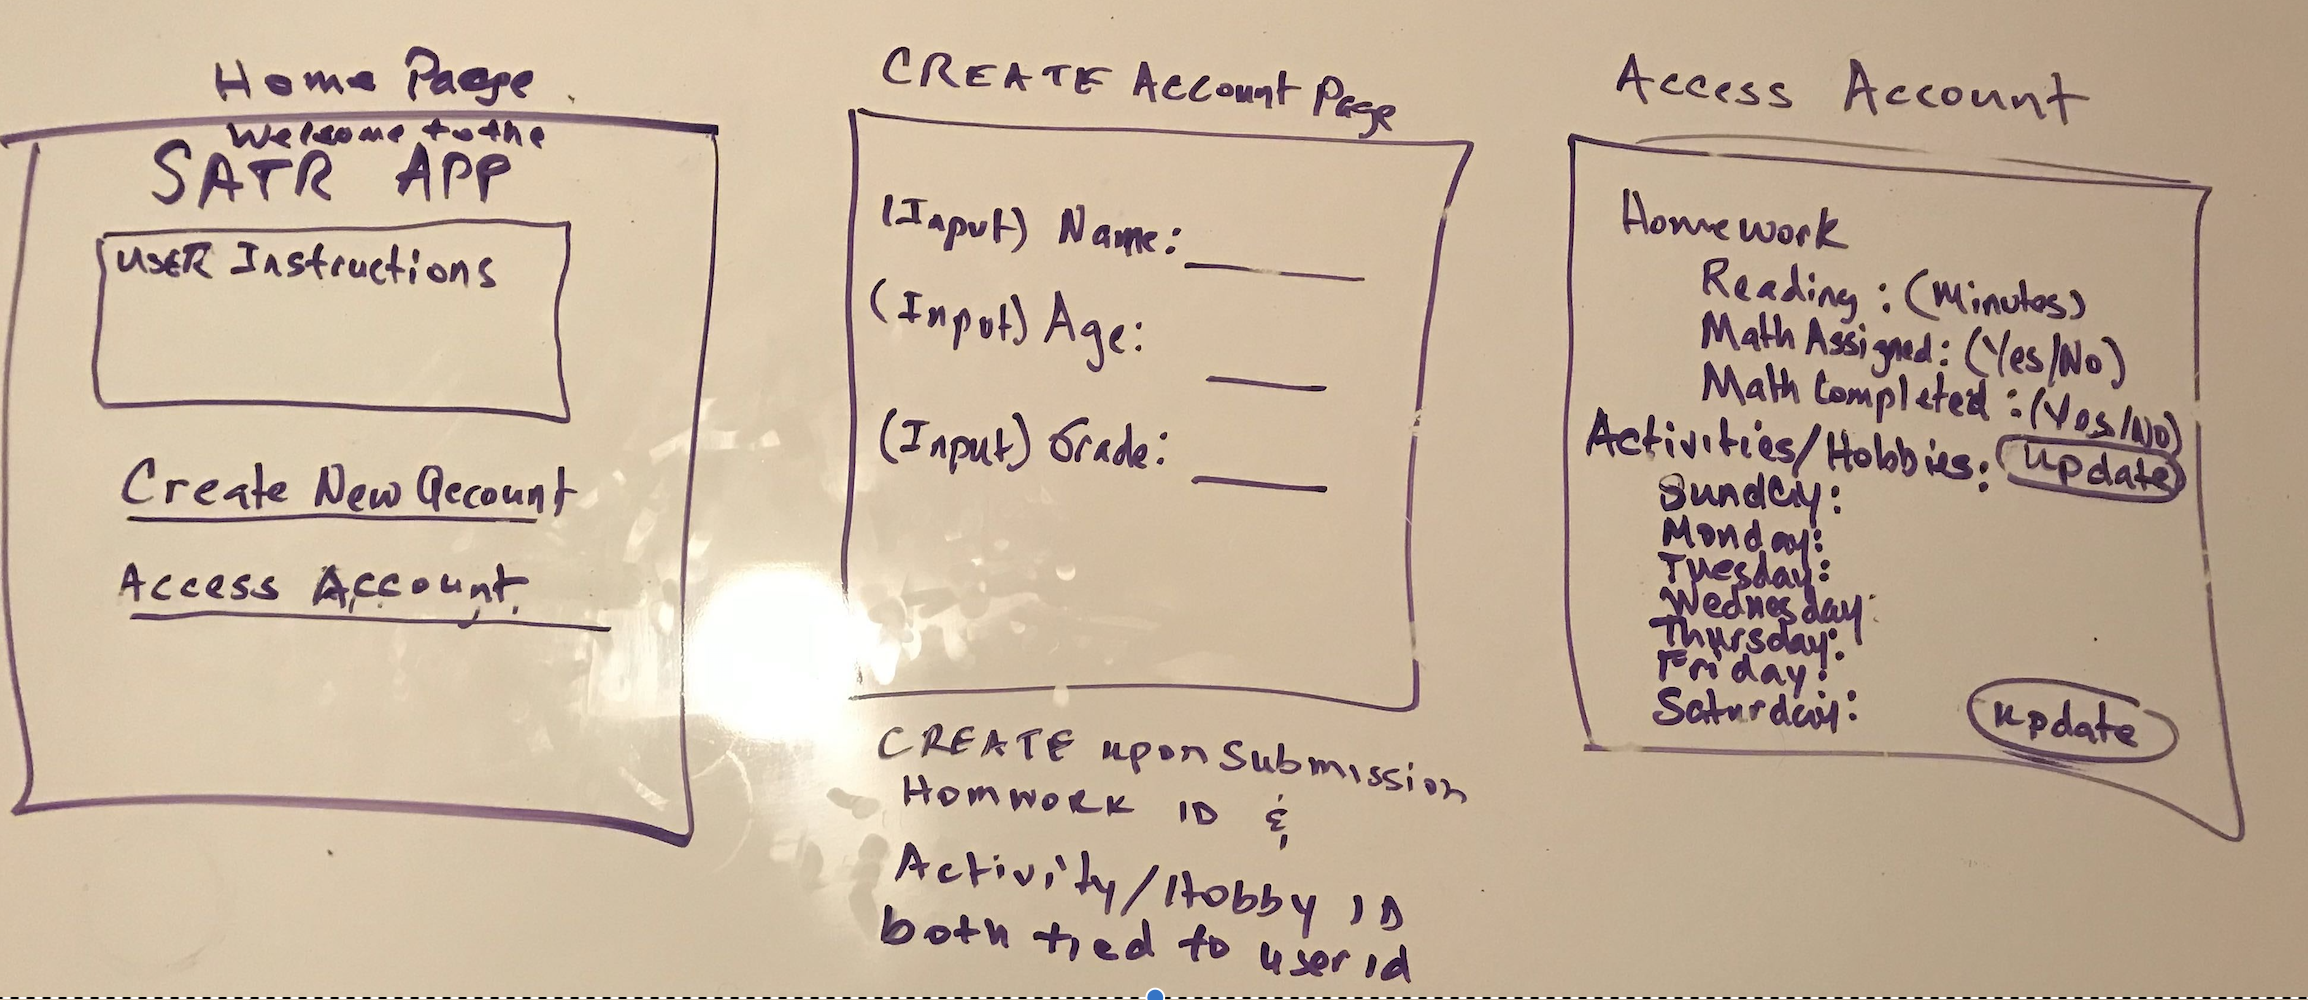 Home Paege
Welcome to the
SATR APP
USER Instructions
Create New account
Access Account
CREATE Account Page
(Input) Name:
(Input) Age:
(Input) Grade:
CREATE upon Submission
HOMWORK ID &
Activity/Hobby ID
both tied to user id
Access Account
Homework
Reading : (Minutes)
Math Assigned: (Yes/No)
Math Completed : (Yes/No)
Activities/Hobbies: update
Sunday:
Monday:
Tuesday:
Wednesday:
Thursday:
Friday:
Saturday:
update